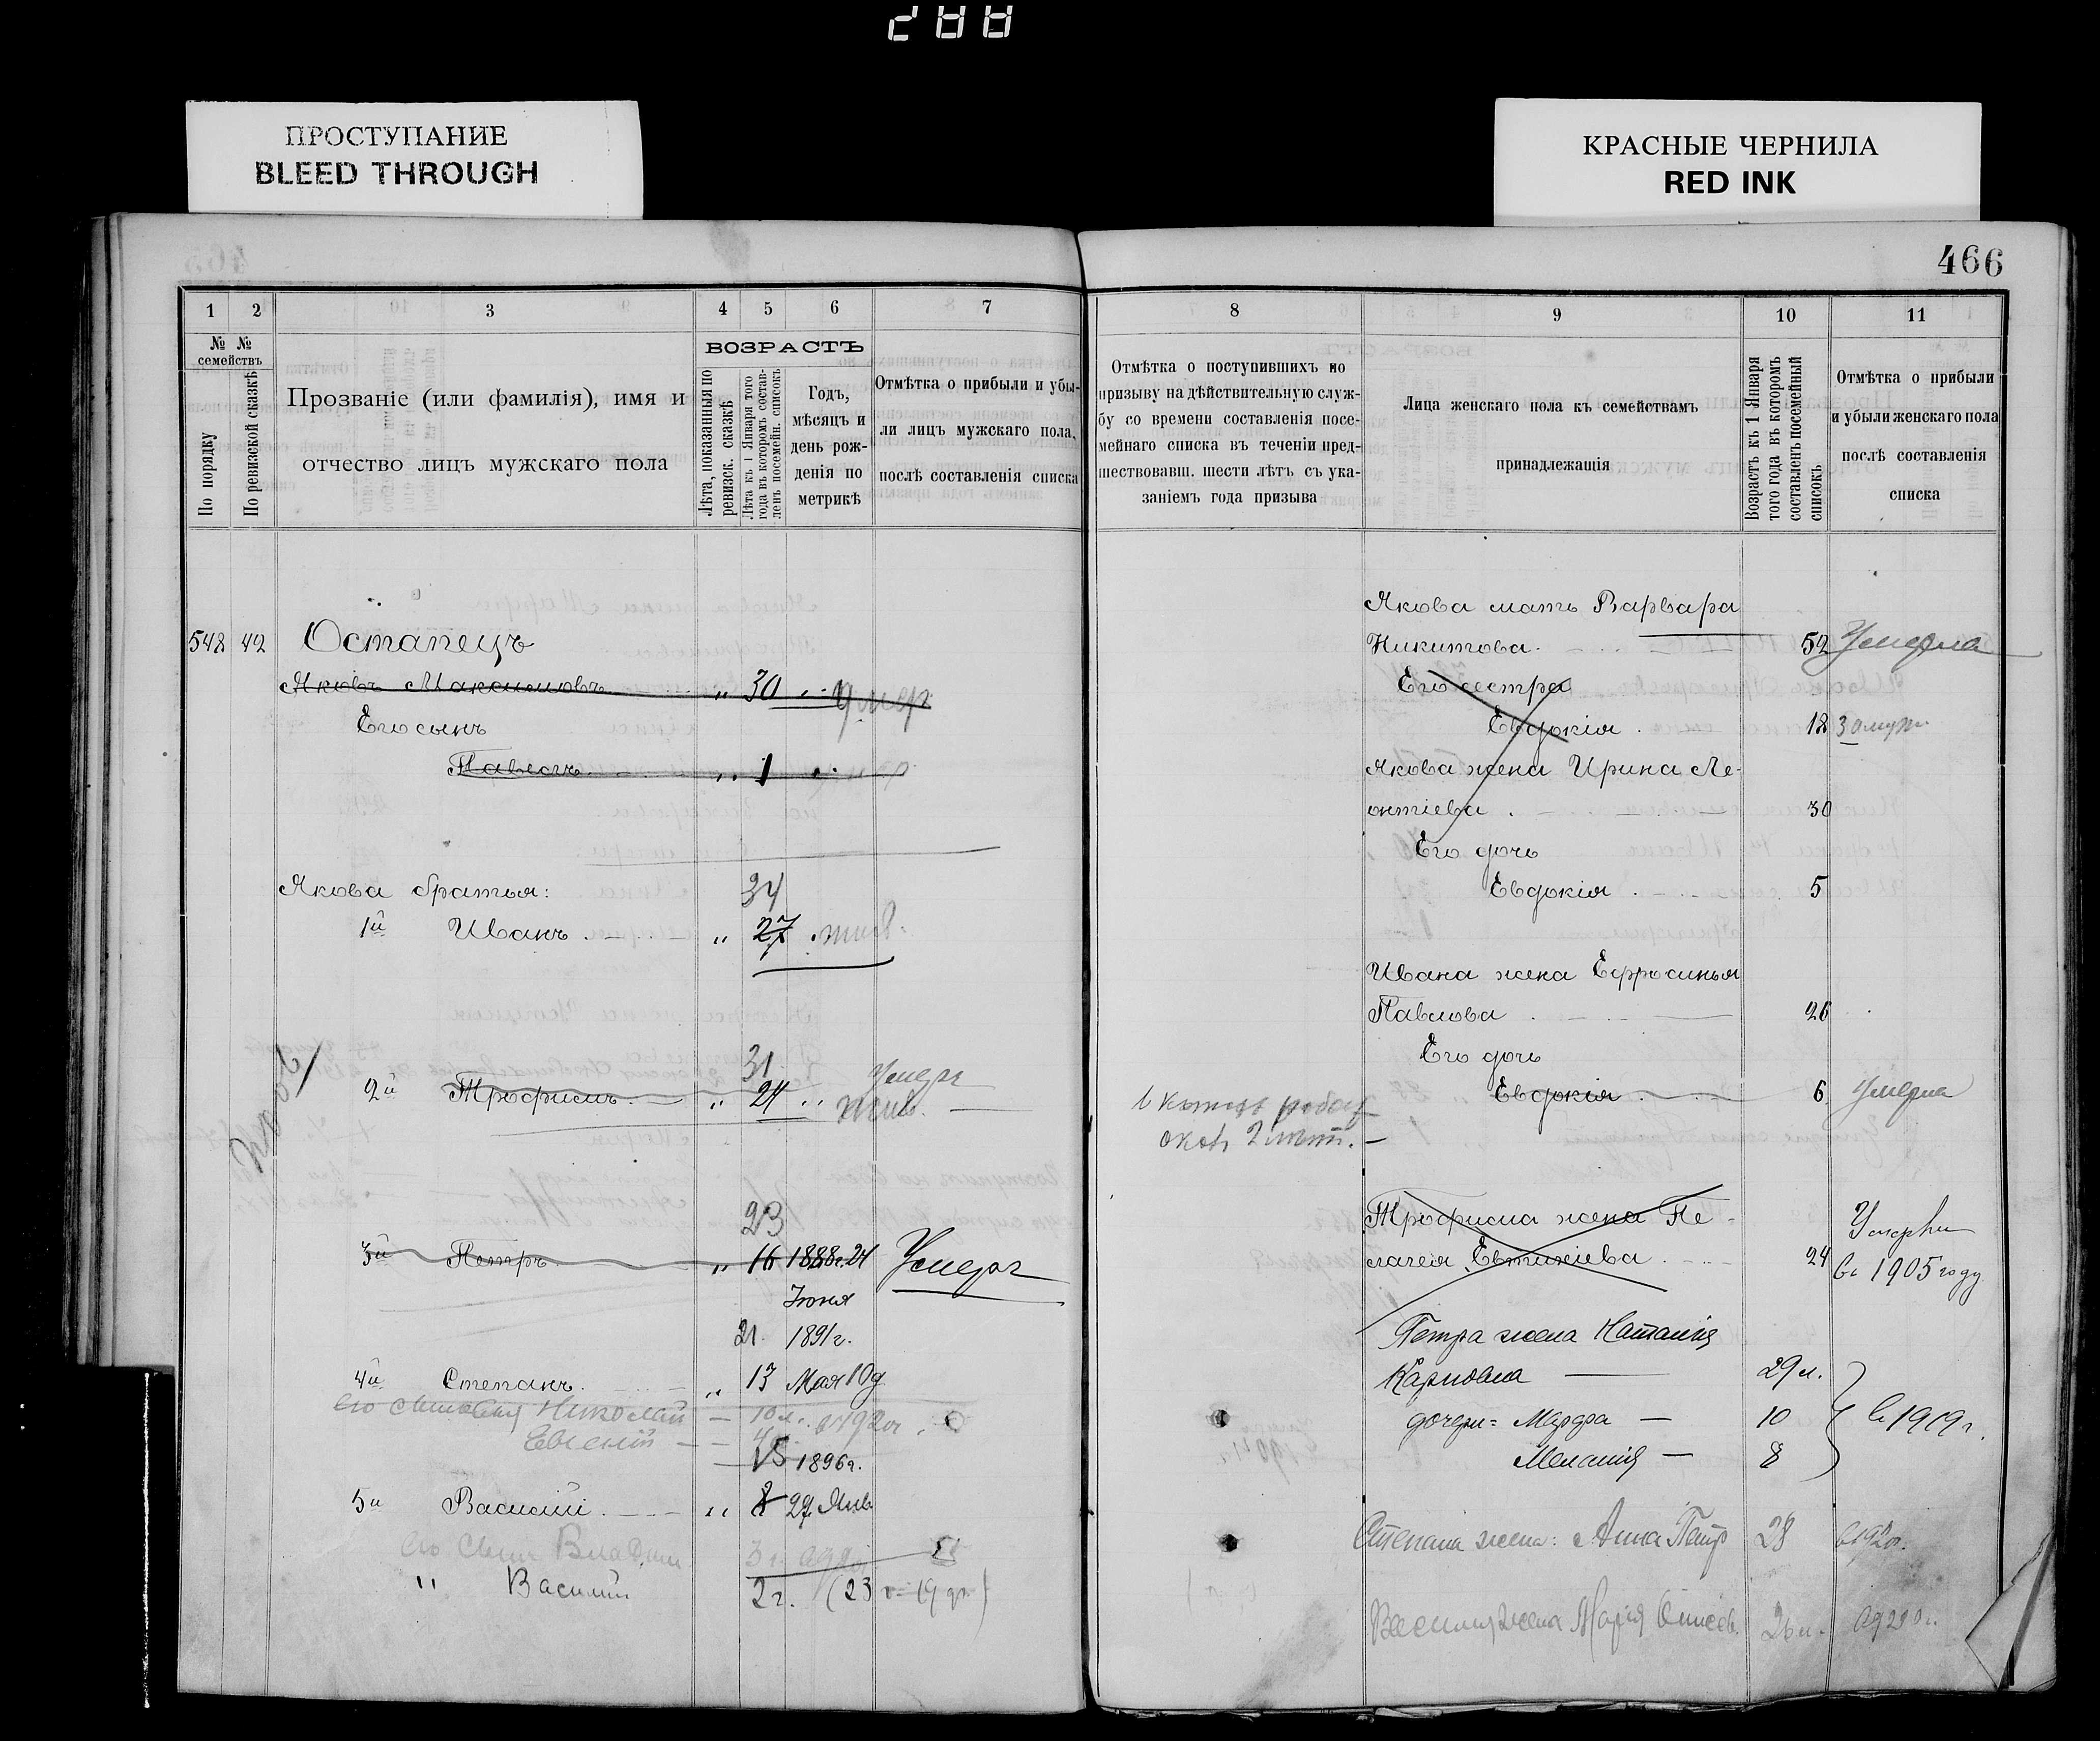 288
ПРОСТУПАНИЕ
BLEED THROUGH
КРАСНЫЕ ЧЕРНИЛА
RED INK
466
1 2 3 4 5 6 7
№ №
семействъ
По порядку
По ревизской сказкѣ
Прозваніе (или фамилія), имя и
отчество лицъ мужскаго пола
ВОЗРАСТЪ
Лѣта, показанныя по
ревизск. сказкѣ
Лѣта къ 1 Января того
года въ которомъ состав-
ленъ посемейн. списокъ
Годъ,
мѣсяцъ и
день рож-
денія по
метрикѣ
Отмѣтка о прибыли и убы-
ли лицъ мужскаго пола,
послѣ составленія списка
548 42 Останецъ
Яковъ Максимовъ „ 30 умер
Его сынъ
Павелъ „ 1
Якова братья:
34
1й Иванъ „ 27
31 Умеръ
2й Трофимъ „ 24 жив.
23
3й Петръ „ 16 1888г. 24 Умеръ
Іюня
21. 1891г.
4й Степанъ „ 13 Мая 10д
Его сыновья Николай — 10л.
Евгеній — 4
15 1896г.
5й Василій „ 8 29 Янв.
Его сынъ 3г.
" Василій 2г. (23
8 9 10 11
Отмѣтка о поступившихъ по
призыву на дѣйствительную служ-
бу со времени составленія посе-
мейнаго списка въ теченіи пред-
шествовавш. шести лѣтъ съ ука-
заніемъ года призыва
Лица женскаго пола къ семействамъ
принадлежащія
Возрастъ къ 1 Января
того года въ которомъ
составленъ посемейный
списокъ
Отмѣтка о прибыли
и убыли женскаго пола
послѣ составленія
списка
Якова мать Варвара
Никитова 52 Умерла
Его сестра
Евдокія 18 Замуж
Якова жена Ирина Ле-
онтіева 30
Его дочь
Евдокія 5
Ивана жена Ефросинья
Павлова 26
Его дочь
Евдокія 6 Умерла
Трофима жена Пе-
лагея Евтихіева 24
въ 1905 году
Петра жена Наталія
Карповна 29л.
дочери = Марфа — 10 въ 1919г.
Меланія — 8
Степана жена: Анна Петр 28
Василія жена Марія 26л.